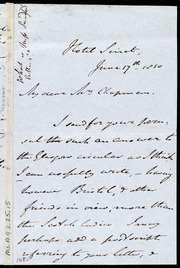 Hotel Sinet.
June 17th 1850
My dear Mrs Chapman.
I send for your perusal
out the such an answer to
the Glasgow circular as I think
I can usefully write – having
however Bristol, & other
friends in view, more than
the Scotch ladies. I may
perhaps add a postscript
referring to your letter, &
What is Miss
Ms.A.9.2.25.15